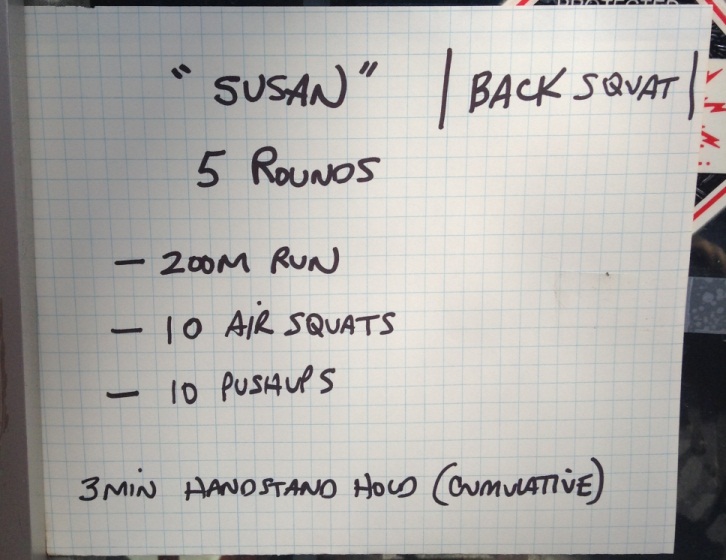 "SUSAN" | BACK SQUAT |
5 ROUNDS
— 200M RUN
— 10 AIR SQUATS
— 10 PUSHUPS
3 MIN HANDSTAND HOLD (CUMULATIVE)